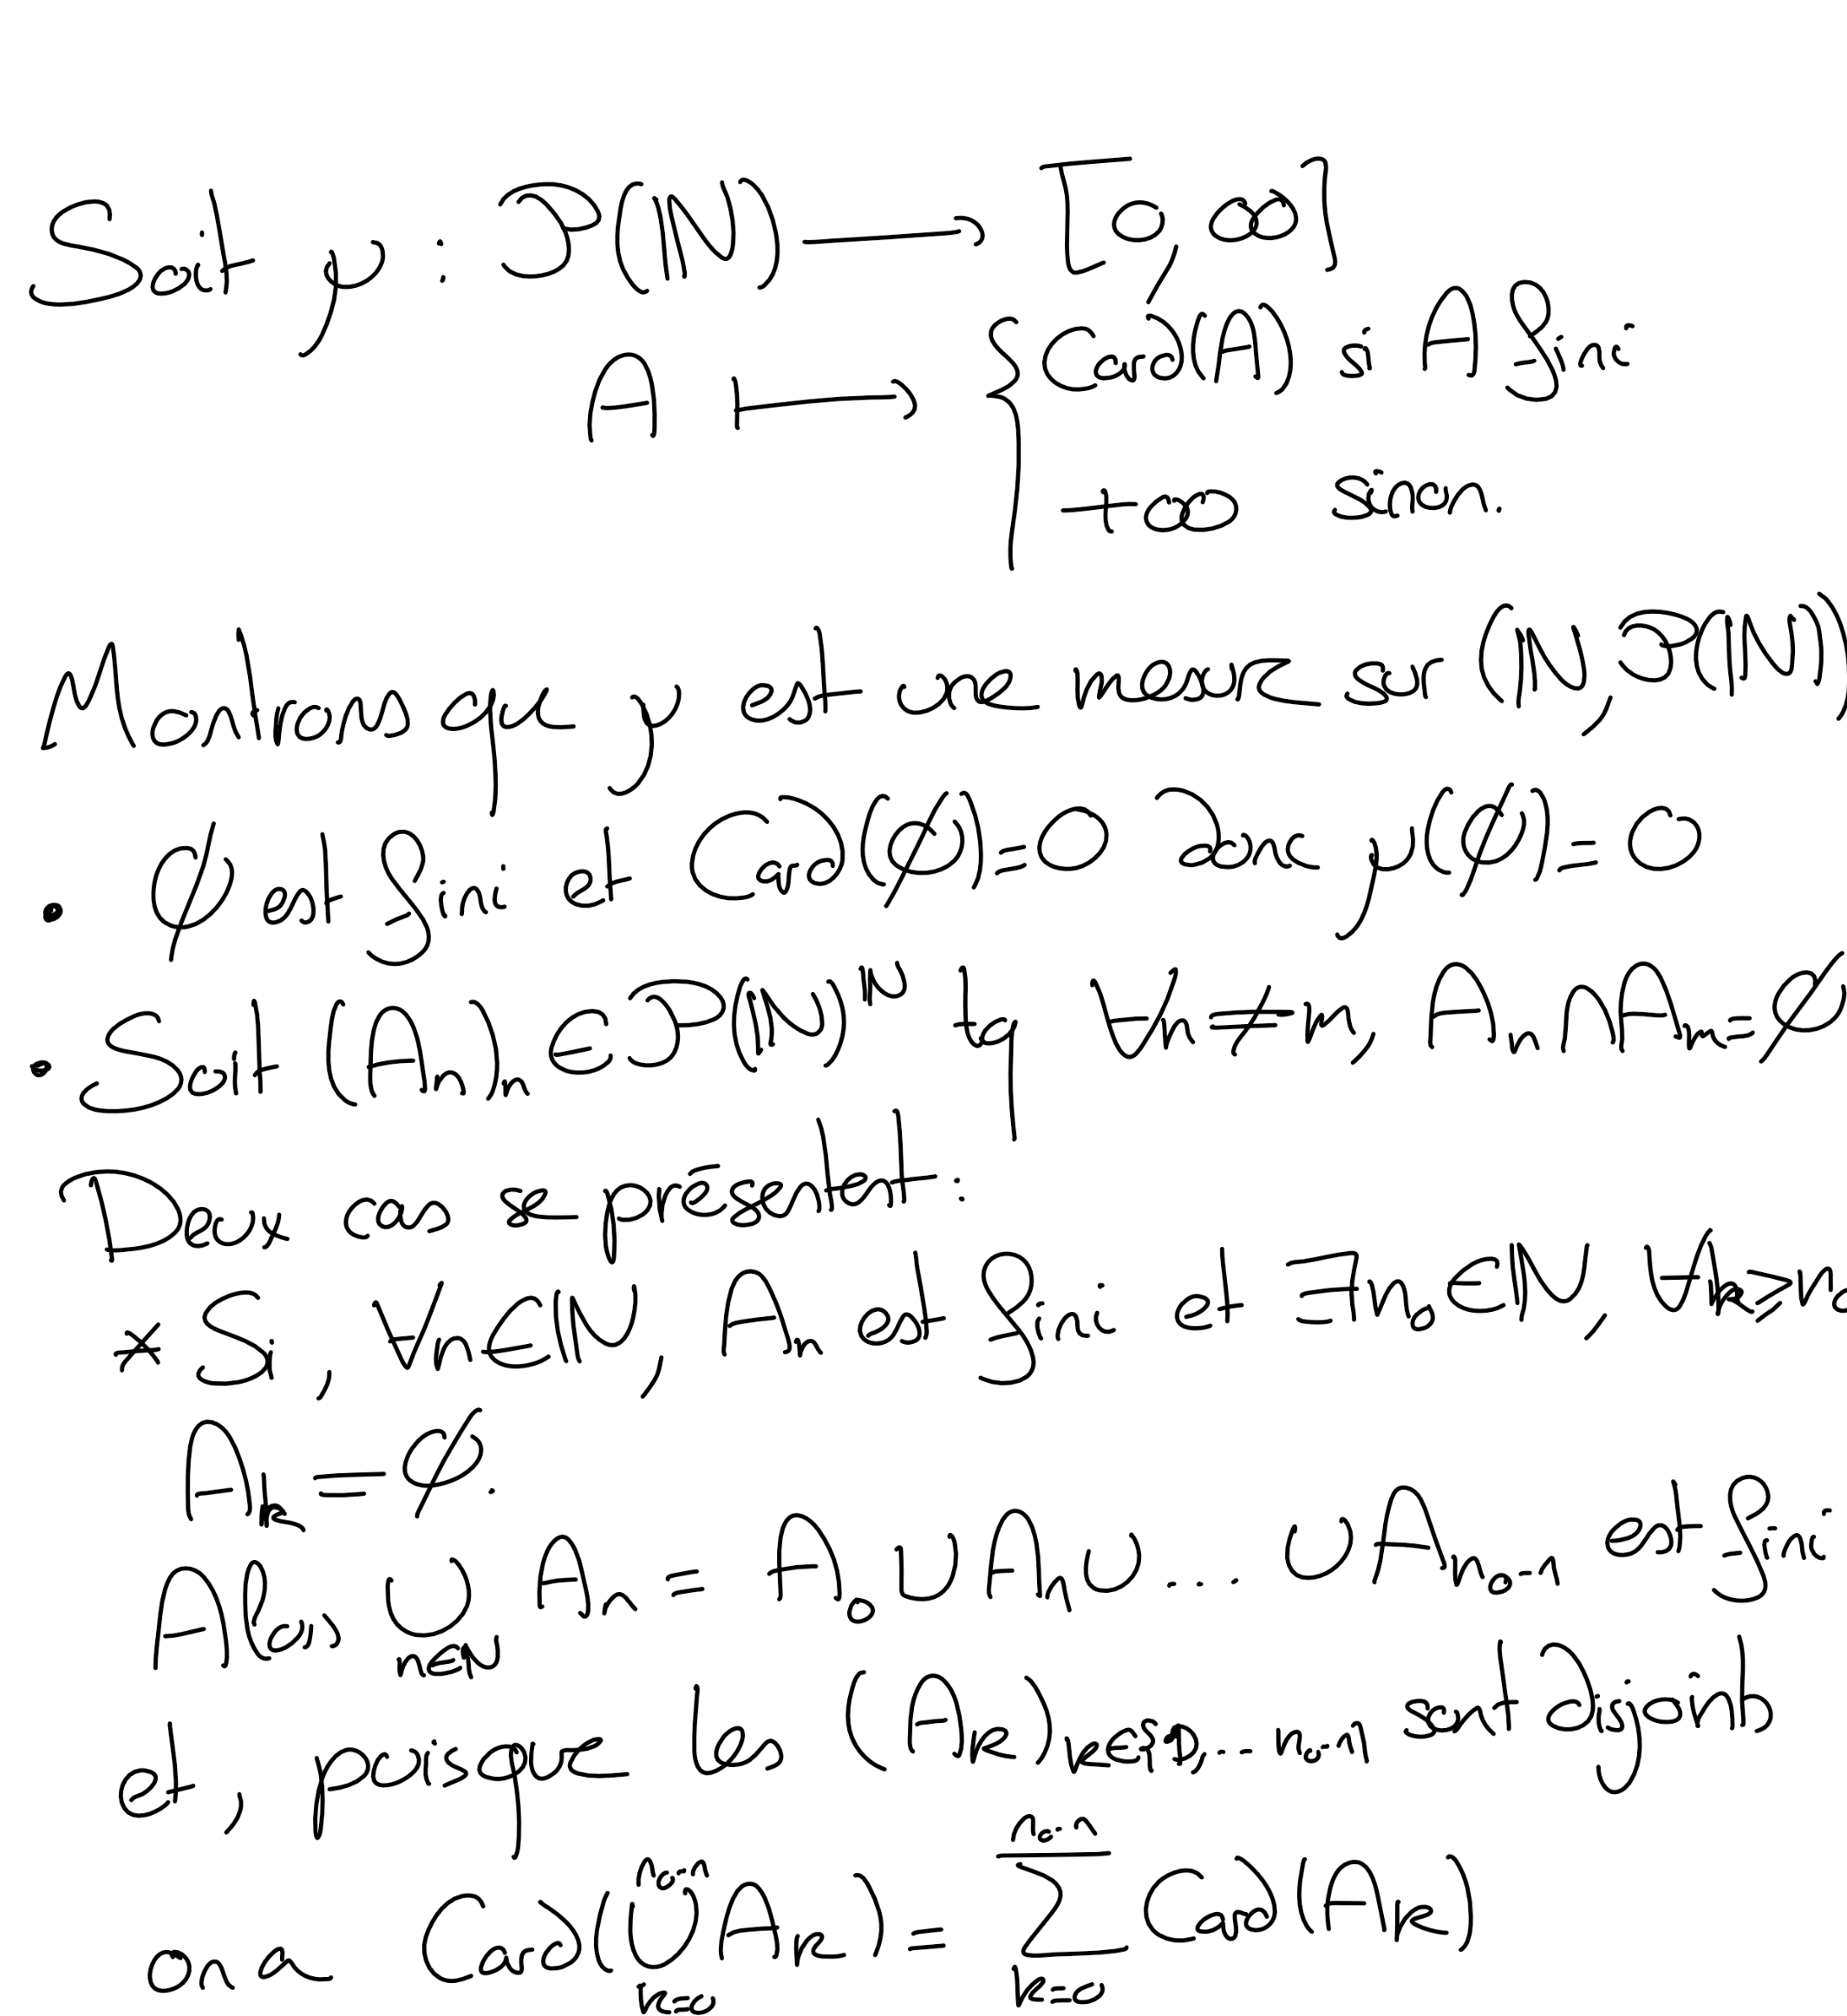 Soit μ : P(ℕ) → [0, ∞]
A ⟼ { Card(A) si A fini
+∞ sinon.
Montrons que μ est une mesure sur (ℕ, P(ℕ))
• ∅ est fini et Card(∅)=0 donc μ(∅)=0
• Soit (Aₙ)ₙ ∈ P(ℕ)^ℕ tq ∀n≠m, Aₙ∩Aₘ=∅
Deux cas se présentent :
* Si, ∀n∈ℕ, Aₙ est fini et ∃n₀∈ℕ, ∀k≥n₀
Aₖ = ∅.
Alors ⋃_{n∈ℕ} Aₙ = A₀∪A₁∪...∪A_{n₀-1} est fini
et, puisque les (Aₖ)_{k∈⟦0,...n₀-1⟧} sont disjoints
on a Card(⋃_{k=0}^{n₀-1} Aₖ) = ∑_{k=0}^{n₀-1} Card(Aₖ)